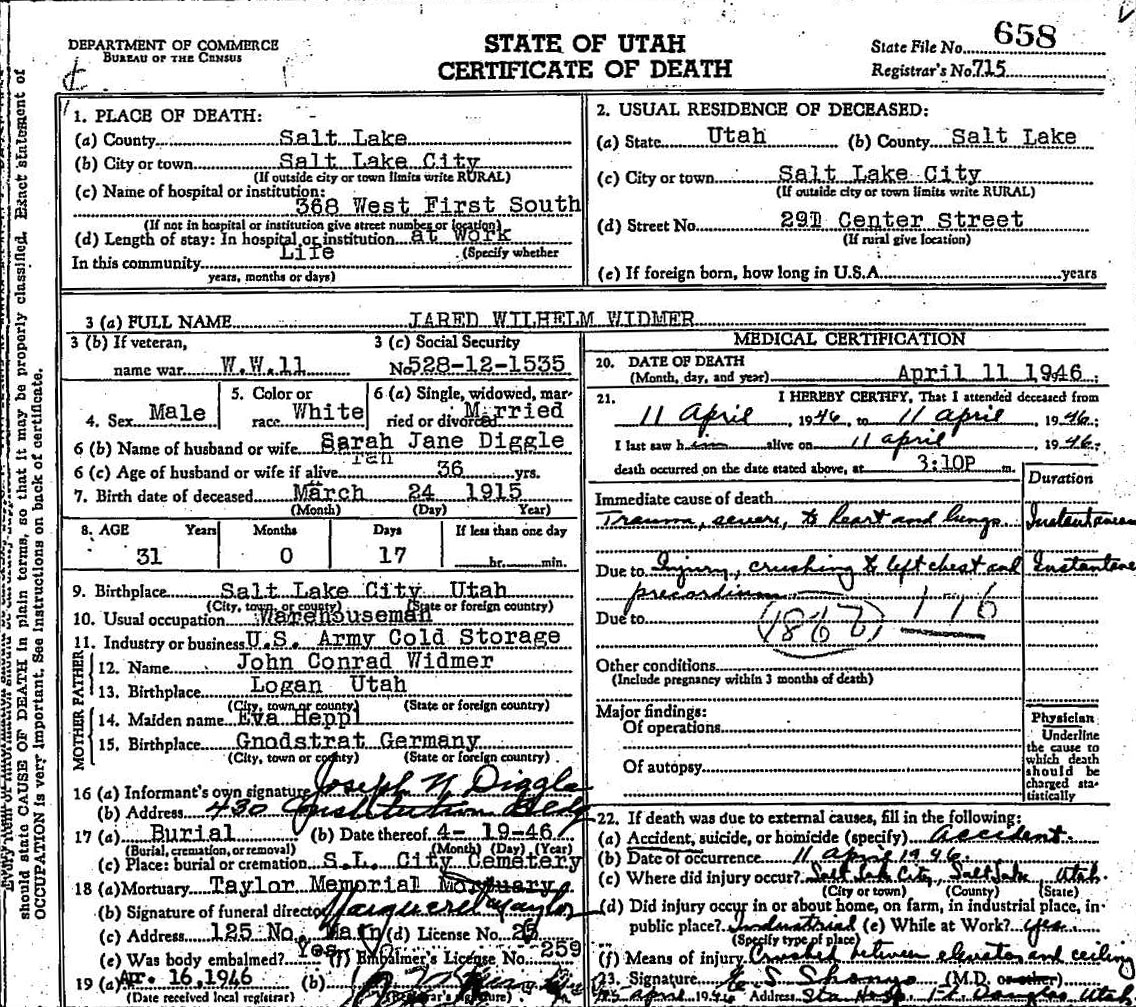 DEPARTMENT OF COMMERCE
BUREAU OF THE CENSUS
STATE OF UTAH
CERTIFICATE OF DEATH
State File No. 658
Registrar's No. 715
should state CAUSE OF DEATH in plain terms, so that it may be properly classified. Exact statement of
OCCUPATION is very important. See Instructions on back of certificate.
1. PLACE OF DEATH:
(a) County Salt Lake
(b) City or town Salt Lake City
(If outside city or town limits write RURAL)
(c) Name of hospital or institution:
368 West First South
(If not in hospital or institution give street number or location)
(d) Length of stay: In hospital or institution at Work
(Specify whether
In this community Life
years, months or days)
2. USUAL RESIDENCE OF DECEASED:
(a) State Utah (b) County Salt Lake
(c) City or town Salt Lake City
(If outside city or town limits write RURAL)
(d) Street No. 291 Center Street
(If rural give location)
(e) If foreign born, how long in U.S.A. years
3 (a) FULL NAME JARED WILHELM WIDMER
3 (b) If veteran,
name war W.W.11
3 (c) Social Security
No. 528-12-1535
4. Sex Male
5. Color or
race White
6 (a) Single, widowed, mar-
ried or divorced Married
6 (b) Name of husband or wife Sarah Jane Diggle
6 (c) Age of husband or wife if alive 36 yrs.
7. Birth date of deceased March 24 1915
(Month) (Day) Year)
8. AGE Years Months Days If less than one day
31 0 17 hr. min.
9. Birthplace Salt Lake City Utah
(City, town, or county) (State or foreign country)
10. Usual occupation Warehouseman
11. Industry or business U.S. Army Cold Storage
FATHER
12. Name John Conrad Widmer
13. Birthplace Logan Utah
(City, town or county) (State or foreign country)
MOTHER
14. Maiden name Eva Heppl
15. Birthplace Gnodstrat Germany
(City, town or county) (State or foreign country)
16 (a) Informant's own signature Joseph N Diggle
(b) Address 430 Constitution Bldg
17 (a) Burial (b) Date thereof 4- 19-46
(Burial, cremation, or removal) (Month) (Day) (Year)
(c) Place: burial or cremation S.L. City Cemetery
18 (a) Mortuary Taylor Memorial Mortuary
(b) Signature of funeral director Taylor
(c) Address 125 No. Main (d) License No.
(e) Was body embalmed? Yes (f) Embalmer's License No. 259
19 (a) Apr. 16, 1946 (b)
(Date received local registrar) (Registrar's signature)
MEDICAL CERTIFICATION
20. DATE OF DEATH
(Month, day, and year) April 11 1946
21. I HEREBY CERTIFY, That I attended deceased from
11 April, 1946, to 11 April, 1946
I last saw him alive on 11 April 1946
death occurred on the date stated above, at 3:10P m.
Duration
Immediate cause of death
Trauma, severe, to heart and lungs. Instantaneous
Due to Injury, crushing to left chest and Instantane
precordium
Due to 176
Other conditions
(Include pregnancy within 3 months of death)
Major findings:
Of operations
Of autopsy
Physician
Underline
the cause to
which death
should be
charged sta-
tistically
22. If death was due to external causes, fill in the following:
(a) Accident, suicide, or homicide (specify) Accident.
(b) Date of occurrence 11 April 1946.
(c) Where did injury occur? Salt Lake City, Salt Lake Utah.
(City or town) (County) (State)
(d) Did injury occur in or about home, on farm, in industrial place, in
public place? Industrial (e) While at Work? yes.
(Specify type of place)
(f) Means of injury Crushed between elevator and ceiling
23. Signature (M.D. or other)
April 1946 Address Sta Hosp Ft Douglas Utah